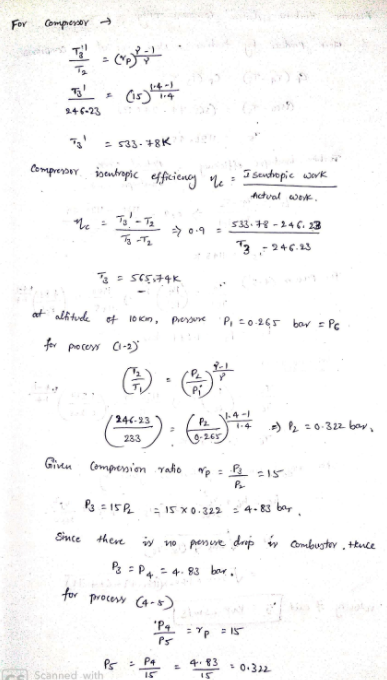 For Compressor →
T3'/T2 = (rp)^(γ-1)/γ
T3'/246.23 = (15)^(1.4-1)/1.4
T3' = 533.78K
Compressor isentropic efficiency ηc = Isentropic work / Actual work.
ηc = T3'-T2 / T3-T2 ⇒ 0.9 = 533.78-246.23 / T3-246.23
T3 = 565.74K
at altitude of 10km, pressure P1 = 0.265 bar = P6
for process (1-2)
(T2/T1) = (P2/P1)^(γ-1)/γ
(246.23/233) = (P2/0.265)^(1.4-1)/1.4 ⇒ P2 = 0.322 bar,
Given Compression ratio rp = P3/P2 = 15
P3 = 15P2 = 15 x 0.322 = 4.83 bar.
Since there is no pressure drop in Combustor, Hence
P3 = P4 = 4.83 bar.
for process (4-5)
P4/P5 = rp = 15
P5 = P4/15 = 4.83/15 = 0.322
CS Scanned with